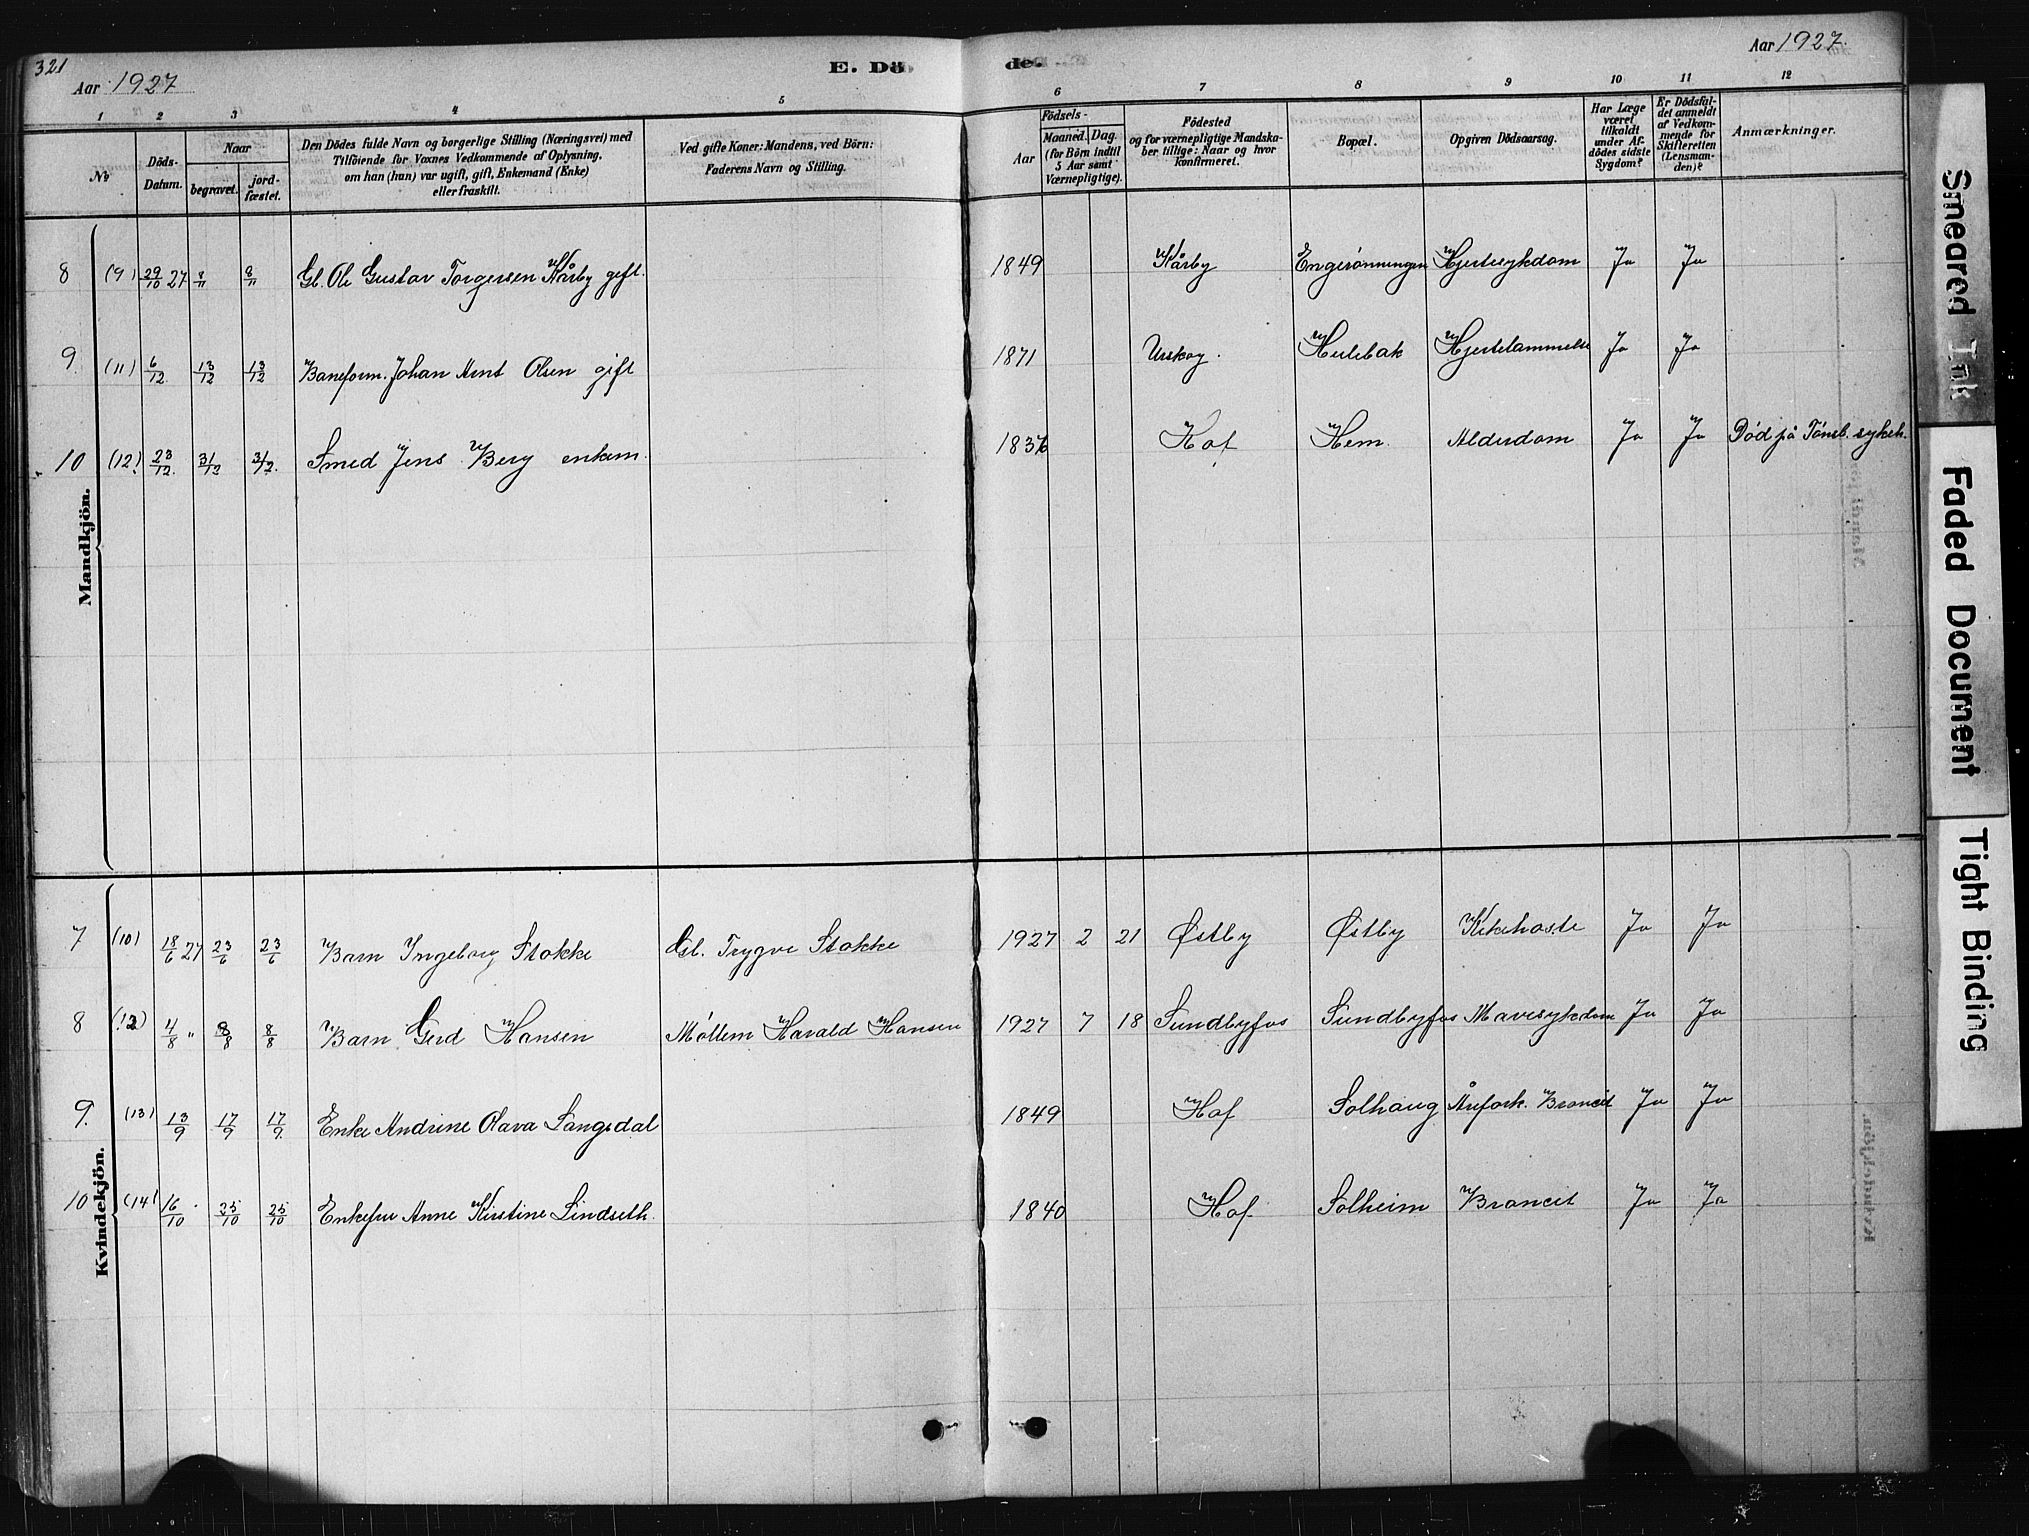 321
Aar 1927
E. Dö
de.
Aar 1927.
1 2 3 4 5 6 7 8 9 10 11 12
No
Döds-
Datum.
Naar
begravet.
jord-
fæstet.
Den Dödes fulde Navn og borgerlige Stilling (Næringsvei) med
Tilföiende for Voxnes Vedkommende af Oplysning,
om han (hun) var ugift, gift, Enkemand (Enke)
eller fraskilt.
Ved gifte Koner: Mandens, ved Börn:
Faderens Navn og Stilling.
Födsels-
Aar
Maaned. Dag.
(for Börn indtil
5 Aar samt
Værnepligtige).
Födested
og for værnepligtige Mandska-
ber tillige: Naar og hvor
konfirmeret.
Bopæl.
Opgiven Dödsaarsag.
Har Læge
været
tilkaldt
under Af-
dödes sidste
Sygdom?
Er Dödsfal-
det anmeldt
af Vedkom-
mende for
Skifteretten
(Lensman-
den)?
Anmærkninger.
Mandkjön.
8 (9) 29/10 27 8/11 8/11 Gb. Ole Gustav Torgersen Kårby gift. 1849 Kårby Engerønningen Hjertesykdom Ja Ja
9. (11) 6/12 13/12 13/12 Baneform. Johan Arnt Olsen gift 1871 Urskog. Hulebak Hjertelammelse Ja Ja
10 (12) 23/12 31/12 31/12. Smed Jens Berg enkem. 1836 Hof Hem Alderdom Ja Ja Død på Tønsb. sykeh.
Kvindekjön.
7 (10) 18/6 27 23/6 23/6 Barn Ingeborg Stokke Gb. Trygve Stokke 1927 2 21 Østby Østby Kikehoste Ja Ja
8 (12) 4/8 " 8/8 8/8 Barn Gerd Hansen Møllem Harald Hansen 1927 7 18 Sundbyfos Sundbyfos Mavesykdom Ja Ja
9. (13) 13/9 17/9 17/9. Enke Andrine Olava Langsdal 1849 Hof Solhaug Årefork. Broncit Ja Ja
10 (14) 16/10 25/10 25/10 Enkefru Anne Kirstine Lindseth. 1840 Hof Solheim Broncit Ja Ja
Smeared Ink
Faded Document
Tight Binding